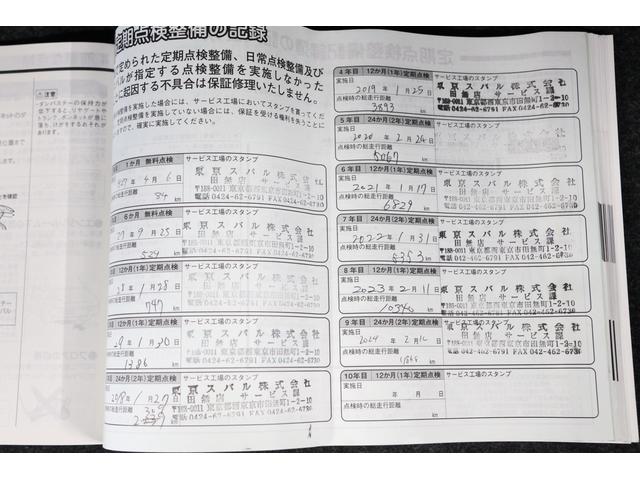 定期点検整備の記録
定められた定期点検整備、日常点検整備及び
バルが指定する点検整備を実施しなかった
に起因する不具合は保証修理いたしません。
検整備を実施した場合には、サービス工場においてスタンプを貰ってくだ
検整備を実施していない場合には、保証を受ける権利を失うことに
ますので、確実に実施してください。
注意
1か月 無料点検
サービス工場のスタンプ
年 4月 6日
84 km
東京スバル株式会社
田無店 サービス課
〒188-0011 東京都西東京市田無町1-2-10
電話 0424-62-6791 FAX 0424-62-6730
6か月 無料点検
サービス工場のスタンプ
27年 9月 25日
総走行距離
529 km
東京スバル株式会社
田無店 サービス課
〒188-0011 東京都西東京市田無町1-2-10
電話 0424-62-6791 FAX 0424-62-6730
12か月(1年)定期点検
サービス工場のスタンプ
28年 1月 28日
の総走行距離
797 km
東京スバル株式会社
田無店 サービス課
〒188-0011 東京都西東京市田無町1-2-10
電話 0424-62-6791 FAX 0424-62-6730
12か月(1年)定期点検
サービス工場のスタンプ
29年 1月 20日
の総走行距離
1386 km
東京スバル株式会社
田無店 サービス課
〒188-0011 東京都西東京市田無町1-2-10
電話 0424-62-6791 FAX 0424-62-6730
24か月(2年)定期点検
サービス工場のスタンプ
2018年 1月 27日
総走行距離
km
東京スバル株式会社
田無店 サービス課
〒188-0011 東京都西東京市田無町1-2-10
電話 0424-62-6791 FAX 0424-62-6730
4年目 12か月(1年)定期点検
サービス工場のスタンプ
実施日
2019年 1月 25日
点検時の総走行距離
3893 km
東京スバル株式会社
田無店 サービス課
〒188-0011 東京都西東京市田無町1-2-10
電話 0424-62-6791 FAX 0424-62-6730
5年目 24か月(2年)定期点検
サービス工場のスタンプ
実施日
2020年 2月 24日
点検時の総走行距離
5067 km
6年目 12か月(1年)定期点検
サービス工場のスタンプ
実施日
2021年 1月 17日
点検時の総走行距離
6829 km
東京スバル株式会社
田無店 サービス課
〒188-0011 東京都西東京市田無町1-2-10
電話 0424-62-6791 FAX 0424-62-6730
7年目 24か月(2年)定期点検
サービス工場のスタンプ
実施日
2022年 1月 31日
点検時の総走行距離
km
東京スバル株式会社
田無店 サービス課
〒188-0011 東京都西東京市田無町1-2-10
電話 042-462-6791 FAX 042-462-6730
8年目 12か月(1年)定期点検
サービス工場のスタンプ
実施日
2023年 2月 11日
点検時の総走行距離
10340 km
東京スバル株式会社
田無店 サービス課
〒188-0011 東京都西東京市田無町1-2-10
電話 042-462-6791 FAX 042-462-6730
9年目 24か月(2年)定期点検
サービス工場のスタンプ
実施日
2024年 2月 12日
点検時の総走行距離
km
東京スバル株式会社
田無店 サービス課
〒188-0011 東京都西東京市田無町1-2-10
電話 042-462-6791 FAX 042-462-6730
10年目 12か月(1年)定期点検
サービス工場のスタンプ
実施日
年 月 日
点検時の総走行距離
km